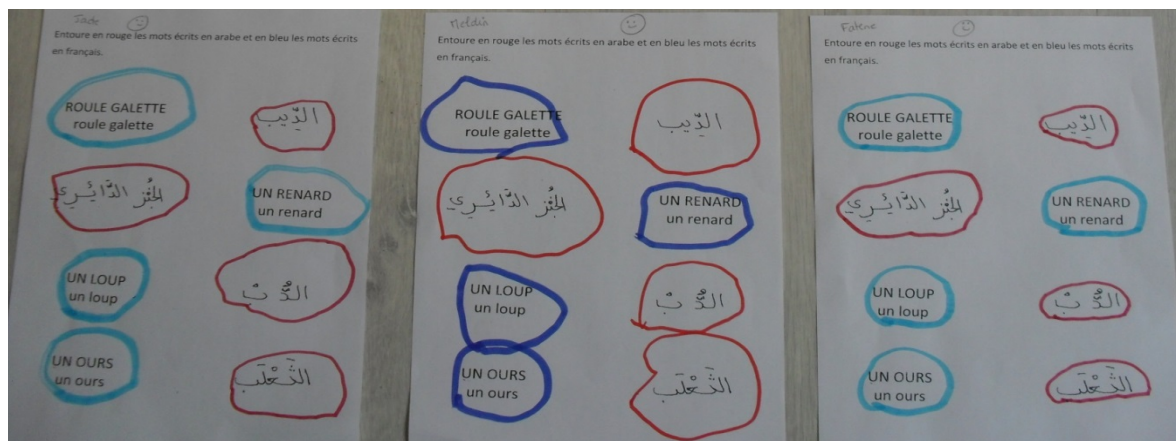 Jade
Entoure en rouge les mots écrits en arabe et en bleu les mots écrits
en français.
ROULE GALETTE
roule galette
الدِّيب
الخُبْز الدَّائِري
UN RENARD
un renard
UN LOUP
un loup
الدُّبْ
UN OURS
un ours
الثَّعْلَب
Entoure en rouge les mots écrits en arabe et en bleu les mots écrits
en français.
ROULE GALETTE
roule galette
الدِّيب
الخُبْز الدَّائِري
UN RENARD
un renard
UN LOUP
un loup
الدُّبْ
UN OURS
un ours
الثَّعْلَب
Fatene
Entoure en rouge les mots écrits en arabe et en bleu les mots écrits
en français.
ROULE GALETTE
roule galette
الدِّيب
الخُبْز الدَّائِري
UN RENARD
un renard
UN LOUP
un loup
الدُّبْ
UN OURS
un ours
الثَّعْلَب